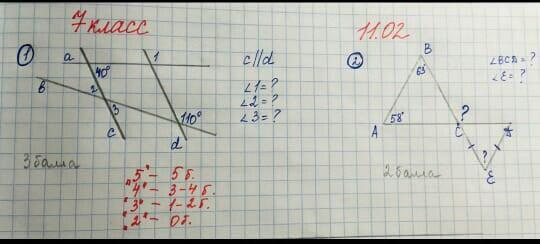 7 класс
11.02
1
a
1
c//d
40°
b
2
3
110°
c
d
∠1=?
∠2=?
∠3=?
3 балла
"5" - 5 б.
"4" - 3-4 б.
"3" - 1-2 б.
"2" - 0 б.
2
B
63°
∠BCD=?
∠E=?
A
58°
?
C
D
?
E
2 балла